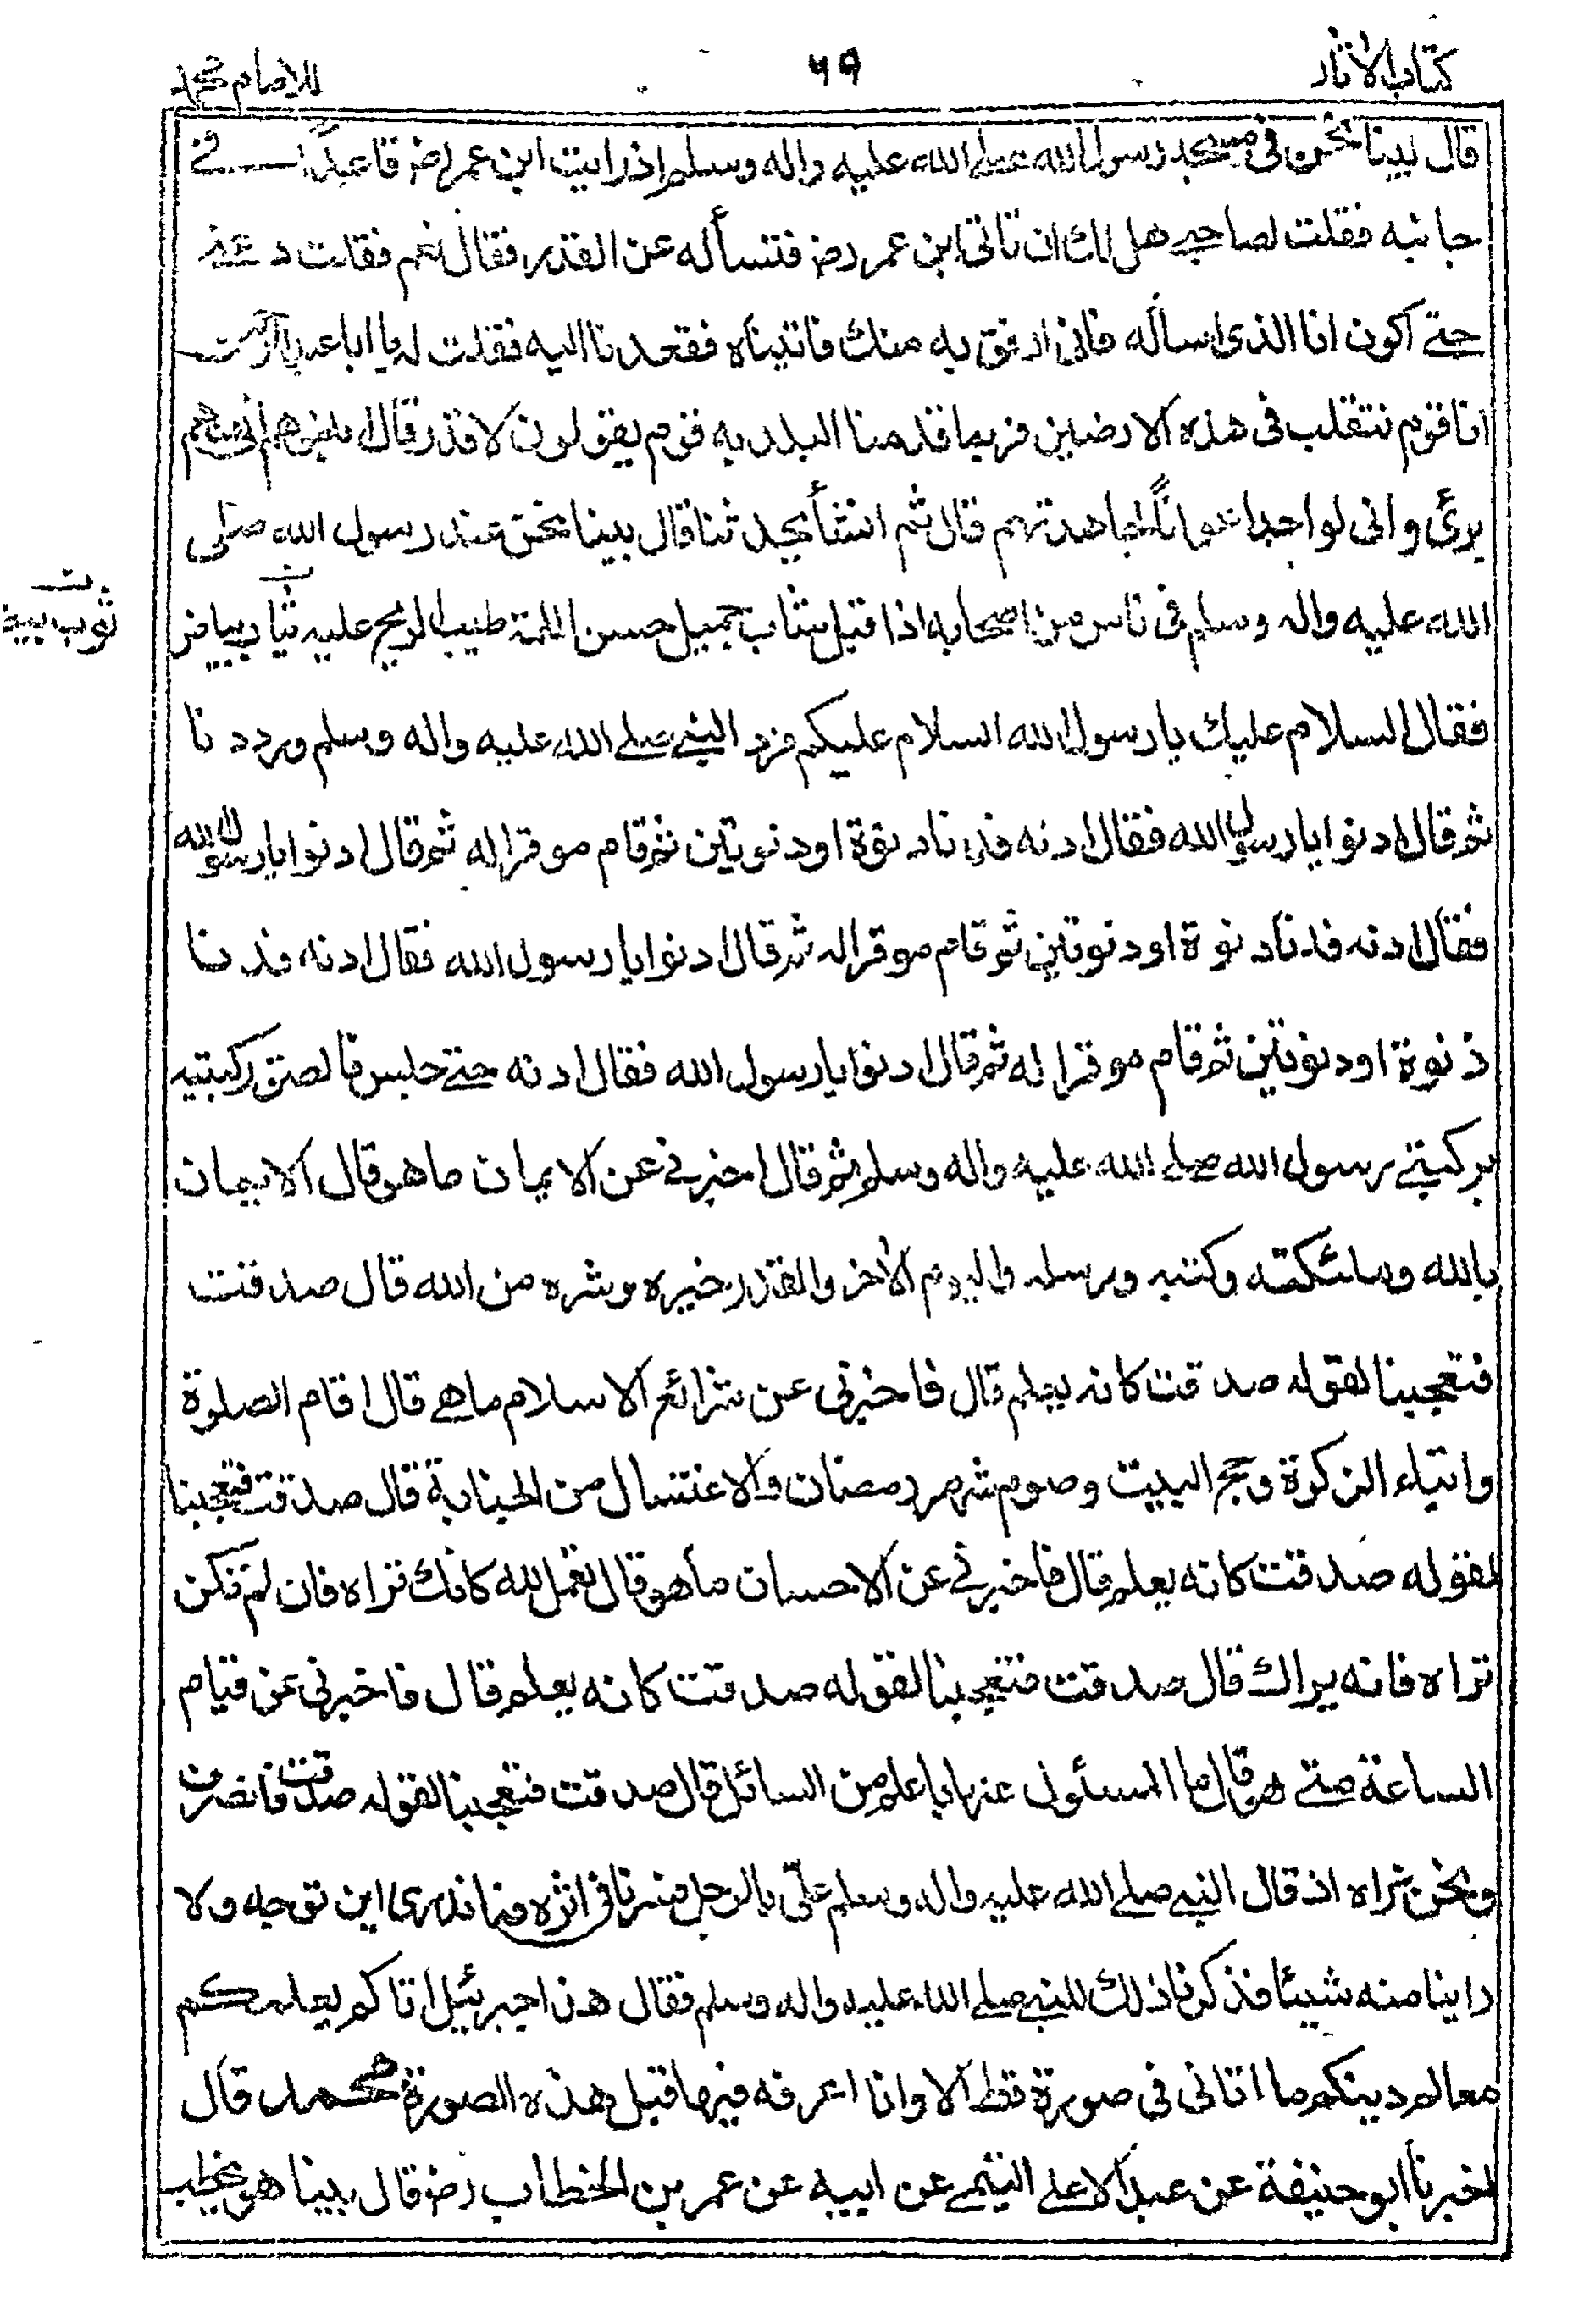 كتاب الاثار
٦٩
للامام محمد
قال بينا نحن فى مسجد رسول الله صلے الله عليه واله وسلم اذ رايت ابن عمر رض قاعدًا فے
جانبه فقلت لصاحبے هل لك ان تاتى ابن عمر رض فتسأله عن القدر فقال نعم فقلت دعنے
حتے اكون انا الذى اسأله فانى ارفق به منك فاتيناه فقعدنا اليه فقلت له يا ابا عبد الرحمن
انا قوم نتقلب فى هذه الارضين فربما قدمنا البلد به قوم يقولون لا قدر قال بلغوهم انى منهم
برئ وانى لو اجد اعوانًا لجاهدتهم قال ثم انشأ يحدثنا قال بينا نحن عند رسول الله صلى
الله عليه واله وسلم فى ناس من اصحابه اذ اقبل شاب جميل حسن اللمة طيب الريح عليه ثياب بياض
ثوب
فقال السلام عليك يا رسول الله السلام عليكم فرد النبے صلے الله عليه واله وسلم ورددنا
ثم قال ادنوا يا رسول الله فقال ادنه فدنا دنوة او دنوتين ثم قام موقرا له ثم قال ادنوا يا رسول الله
فقال ادنه فدنا دنوة او دنوتين ثم قام موقرا له ثم قال ادنوا يا رسول الله فقال ادنه فدنا
دنوة او دنوتين ثم قام موقرا له ثم قال ادنوا يا رسول الله فقال ادنه حتے جلس فالصق ركبتيه
بركبتے رسول الله صلے الله عليه واله وسلم ثم قال اخبرنے عن الايمان ما هو قال الايمان
بالله وملئكته وكتبه ورسله واليوم الاٰخر والقدر خيره وشره من الله قال صدقت
فتعجبنا لقوله صدقت كانه يعلم قال فاخبرنى عن شرائع الاسلام ما هے قال اقام الصلوة
وايتاء الزكوة وحج البيت وصوم شهر رمضان والاغتسال من الجنابة قال صدقت فتعجبنا
لقوله صدقت كانه يعلم قال فاخبرنے عن الاحسان ما هو قال تعمل لله كانك تراه فان لم تكن
تراه فانه يراك قال صدقت فتعجبنا لقوله صدقت كانه يعلم قال فاخبرنى عن قيام
الساعة متے هو قال ما المسئول عنها باعلم من السائل قال صدقت فتعجبنا لقوله صدقت فانصرف
ونحن نراه اذ قال النبے صلے الله عليه واله وسلم علىّ بالرجل فسرنا فى اثره فما ندرى اين توجه ولا
راينا منه شيئا فذكرنا ذلك للنبے صلے الله عليه واله وسلم فقال هذا جبرئيل اتاكم يعلمكم
معالم دينكم ما اتانى فى صورة قط الا وانا اعرفه فيها قبل هذه الصورة محمد قال
اخبرنا ابو حنيفة عن عبد الاعلے التيمے عن ابيه عن عمر بن الخطاب رض قال بينا هو يخطب